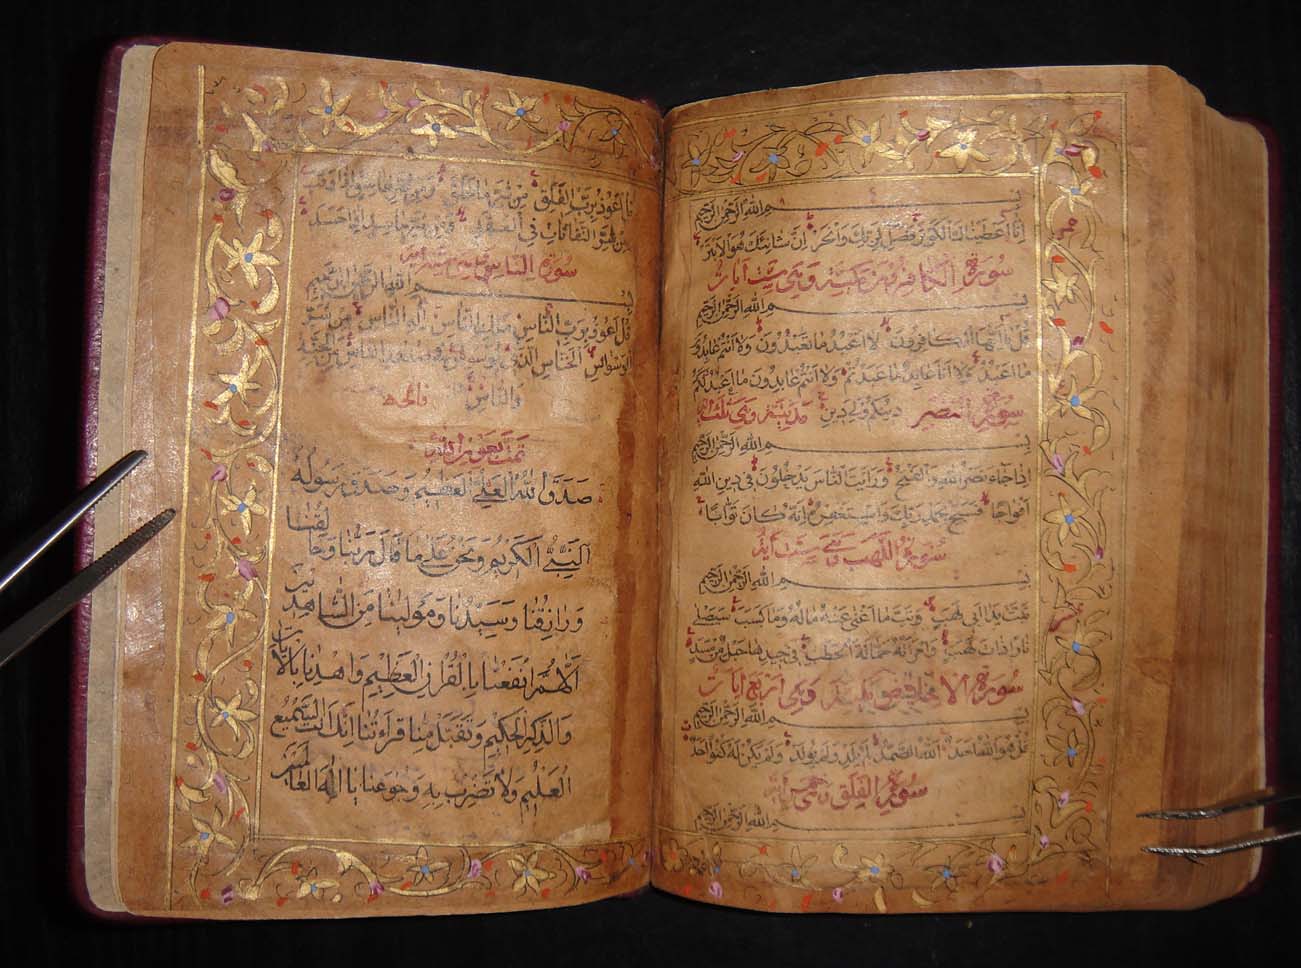 بسم الله الرحمن الرحيم
إنا أعطيناك الكوثر فصل لربك وانحر إن شانئك هو الأبتر
سورة الكافرون مكية وهي ست آيات
بسم الله الرحمن الرحيم
قل يا أيها الكافرون لا أعبد ما تعبدون ولا أنتم عابدون
ما أعبد ولا أنا عابد ما عبدتم ولا أنتم عابدون ما أعبد لكم
سورة النصر دينكم ولي دين مدنية وهي ثلث
بسم الله الرحمن الرحيم
إذا جاء نصر الله والفتح ورأيت الناس يدخلون في دين الله
أفواجا فسبح بحمد ربك واستغفره إنه كان توابا
سورة اللهب
بسم الله الرحمن الرحيم
تبت يدا أبي لهب وتب ما أغنى عنه ماله وما كسب سيصلى
نارا ذات لهب وامرأته حمالة الحطب في جيدها حبل من مسد
سورة الاخلاص وهي أربع آيات
بسم الله الرحمن الرحيم
قل هو الله أحد الله الصمد لم يلد ولم يولد ولم يكن له كفوا أحد
سورة الفلق
بسم الله الرحمن الرحيم
قل أعوذ برب الفلق من شر ما خلق ومن شر غاسق إذا وقب
ومن شر النفاثات في العقد ومن شر حاسد إذا حسد
سورة الناس
بسم الله الرحمن الرحيم
قل أعوذ برب الناس ملك الناس إله الناس من شر
الوسواس الخناس الذي يوسوس في صدور الناس من الجنة
والناس
تمت بعون الله
صدق الله العلي العظيم وصدق رسوله
النبي الكريم ونحن على ما قال ربنا وخالقنا
ورازقنا وسيدنا ومولينا من الشاهدين
اللهم انفعنا بالقران العظيم واهدنا بالآيات
والذكر الحكيم وتقبل منا قراءتنا إنك أنت السميع
العليم ولا تضرب به وجوهنا يا إله العالمين